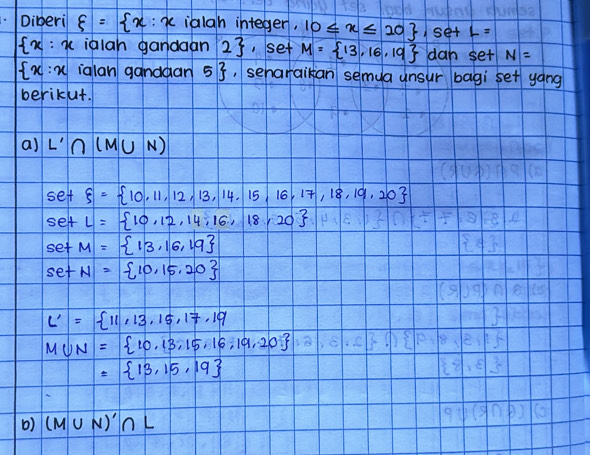 Diberi ξ = {x : x ialah integer, 10 ≤ x ≤ 20}, set L =
{x : x ialah gandaan 2}, set M = {13,16,19} dan set N =
{x : x ialah gandaan 5}, senaraikan semua unsur bagi set yang
berikut.
a) L' ∩ (M ∪ N)
set ξ = {10, 11, 12, 13, 14, 15, 16, 17, 18, 19, 20}
set L = {10, 12, 14, 16, 18, 20}
set M = {13, 16, 19}
set N = {10, 15, 20}
L' = {11, 13, 15, 17, 19
M ∪ N = {10, 13, 15, 16, 19, 20}
= {13, 15, 19}
b) (M ∪ N)' ∩ L